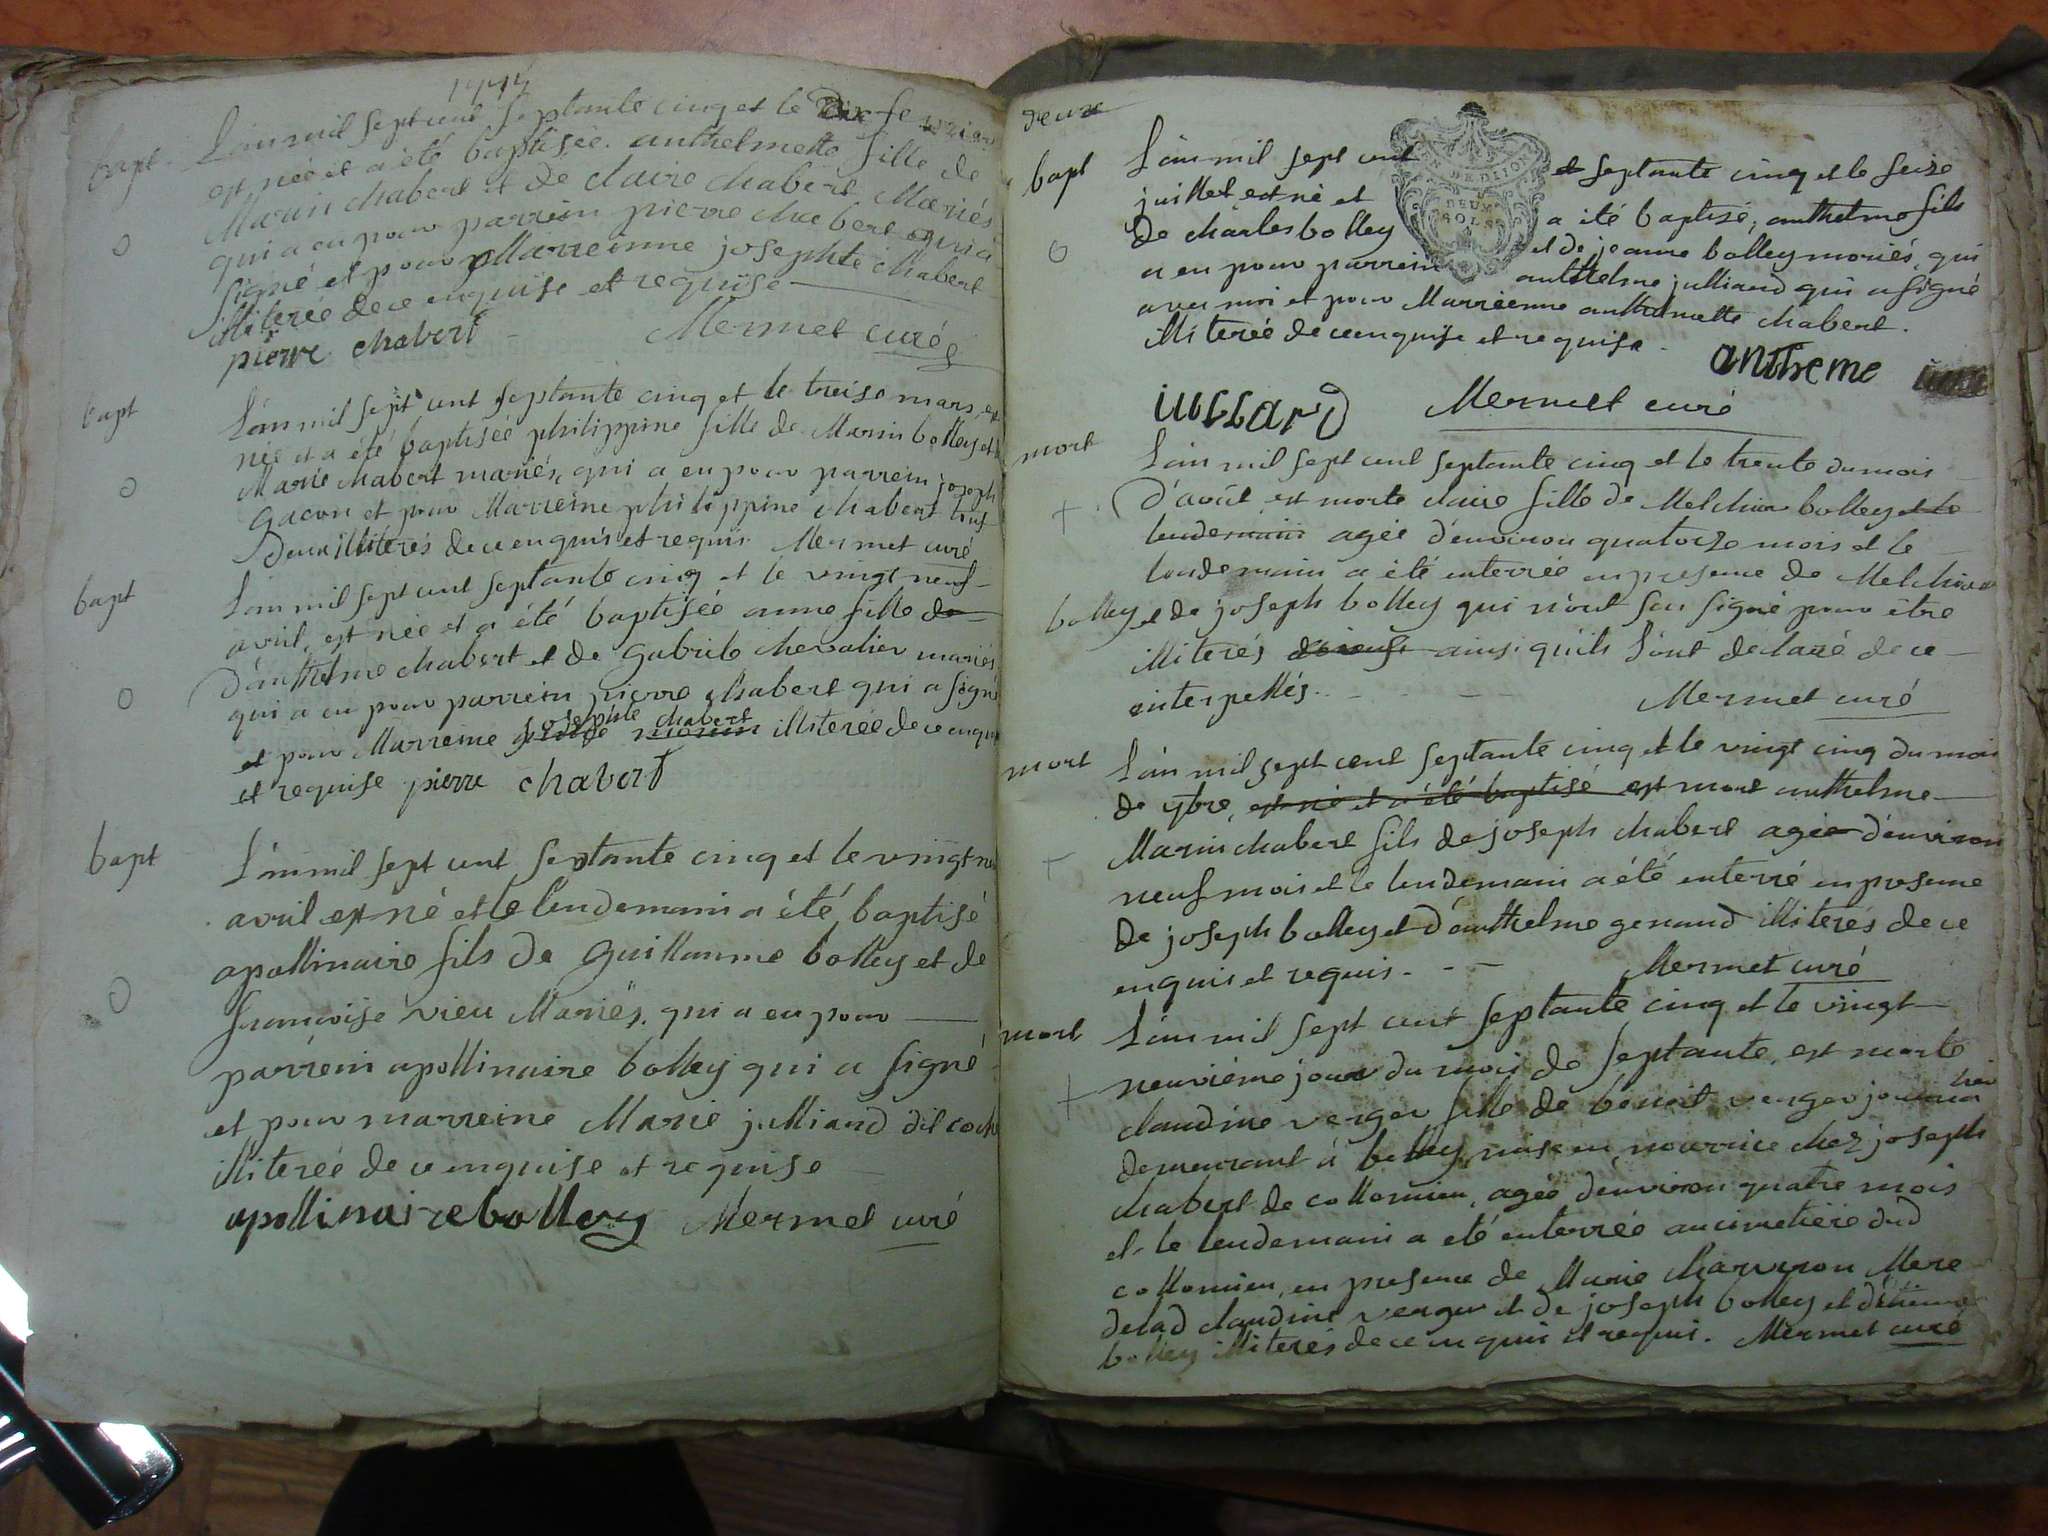 1775
bapt L'an mil sept cent septante cinq et le Dix fevrier
est née et a été baptisée anthelmette fille de
Marin chabert et de claire chabert Mariés
qui a eu pour parrein pierre chabert qui a
signé et pour Marreinne josephte chabert
illiterée de ce enquise et requise
pierre chabert Mermet curé
bapt L'an mil sept cent septante cinq et le treise mars, est
née et a été baptisée philippine fille de Marin bolley et de
Marie chabert mariés, qui a eu pour parrein joseph
gacon et pour Marreine philippine chabert tous
Deux illiterés de ce enquis et requis Mermet curé
bapt L'an mil sept cent septante cinq et le vingt neuf
avril, est née et a été baptisée anne fille de
D'anthelme chabert et de gabriele chevalier mariés
qui a eu pour parrein pierre chabert qui a signé
josephte chabert
et pour Marreine illiterée de ce enquise
et requise pierre chabert
bapt L'an mil sept cent septante cinq et le vingt
avril est né et le lendemain a été baptisé
apollinaire fils de guillaume bolley et de
françoise vieu Mariés, qui a eu pour
parrein apollinaire bolley qui a signé
et pour marreine Marie julliand dit coch
illiterée de ce enquise et requise
apollinaire bolley Mermet curé
deux
bapt L'an mil sept cent et septante cinq et le seize
juillet est né et a été baptisé, anthelme fils
de charles bolley et de jeanne bolley mariés, qui
a eu pour parrein anthelme julliand qui a signé
avec moi et pour Marreinne anthelmette chabert
illiterée de ce enquise et requise. antheme
iullard Mermet curé
DE DIJON
DEUX
SOLS
mort L'an mil sept cent septante cinq et le trente du mois
D'août est morte claire fille de Melchior bolley et le
lendemain agée d'environ quatorze mois et le
lendemain a été enterrée en presence de Melchior
bolley et de joseph bolley qui n'ont su signé pour être
illiterés ainsi qu'ils l'ont declaré de ce
interpellés. Mermet curé
mort L'an mil sept cent septante cinq et le vingt cinq du mois
de 7bre, est né et a été baptisé est mort anthelme
Marin chabert fils de joseph chabert agée d'environ
neuf mois et le lendemain a été enterré en presence
de joseph bolley et d'anthelme genand illiterés de ce
enquis et requis. Mermet curé
mort L'an mil sept cent septante cinq et le vingt
neuvième jour du mois de septante, est morte
claudine verger fille de benoit verger
demeurant à belley, mise en nourrice chez joseph
chabert de collomieu, agée d'environ quatre mois
et le lendemain a été enterrée au cimetière dud
collomieu, en presence de Marie charviron Mere
de lad claudine verger et de joseph bolley et d'étienne
bolley illiterés de ce enquis et requis. Mermet curé